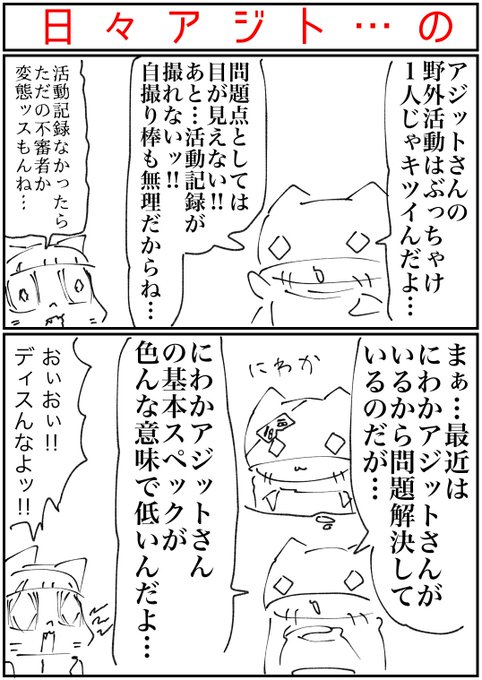 日々アジト…の
アジットさんの
野外活動はぶっちゃけ
1人じゃキツイんだよ…
問題点としては
目が見えない!!
あと…活動記録が
撮れないッ!!
自撮り棒も無理だからね…
活動記録なかったら
ただの不審者か
変態ッスもんね…
まぁ…最近は
にわかアジットさんが
いるから問題解決して
いるのだが…
にわか
にわかアジットさん
の基本スペックが
色んな意味で低いんだよ…
おぃおぃ!!
ディスんなよッ!!